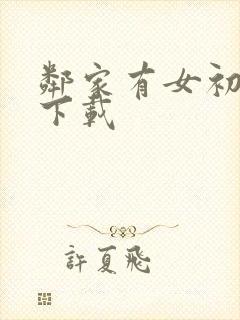 鄰家有女初
下載
許夏飛